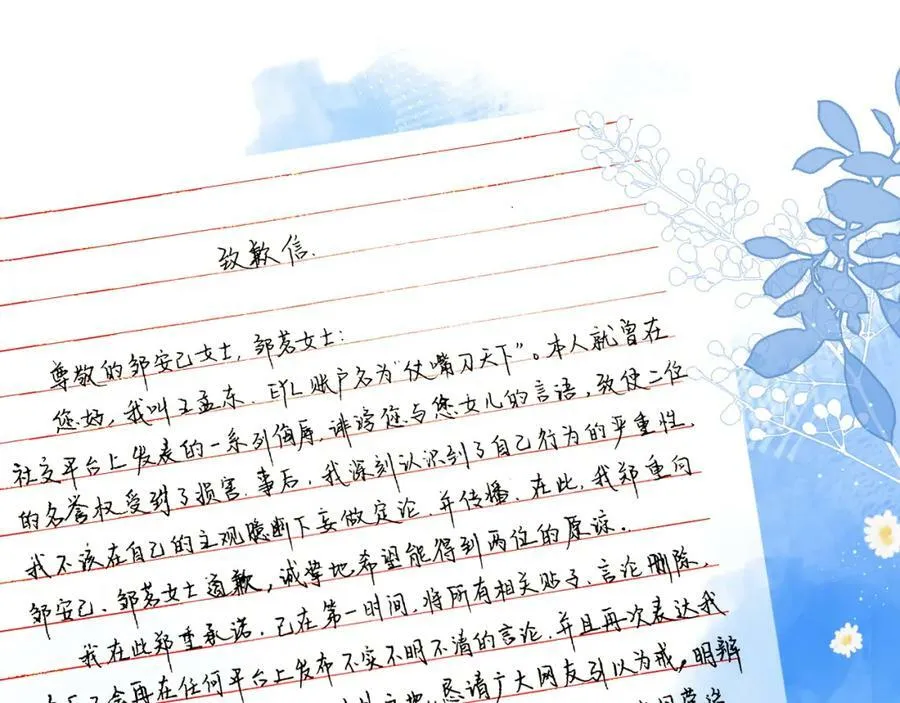 致歉信.
尊敬的邹安己女士，邹茗女士：
您好，我叫王孟东，EYL账户名为“仗嘴刀天下”。本人就曾在
社交平台上发表的一系列侮辱，诽谤您与您女儿的言语，致使二位
的名誉权受到了损害。事后，我深刻认识到了自己行为的严重性，
我不该在自己的主观臆断下妄做定论，并传播。在此，我郑重向
邹安己、邹茗女士道歉，诚挚地希望能得到两位的原谅。
我在此郑重承诺，已在第一时间，将所有相关贴子、言论删除，
会再在任何平台上发布不实不明不清的言论，并且再次表达我
恳请广大网友引以为戒，明辨